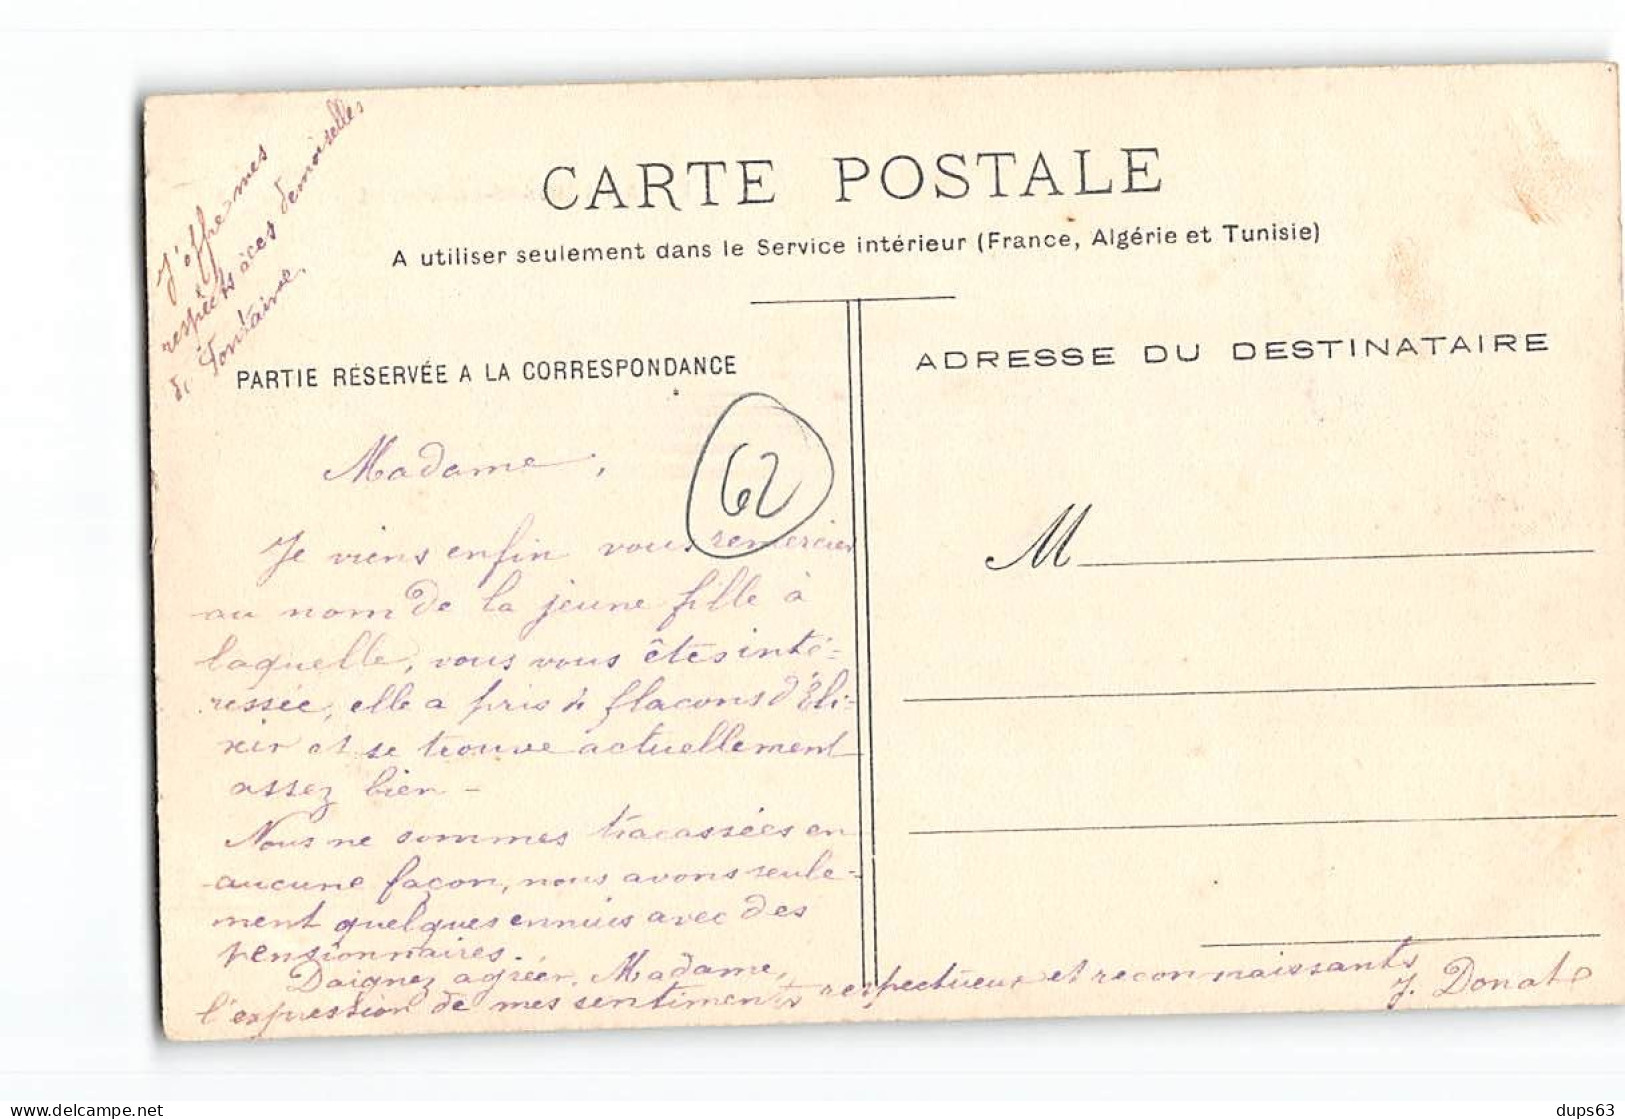 J'offre mes
respects à ces demoiselles
de Fontaine.
CARTE POSTALE
A utiliser seulement dans le Service intérieur (France, Algérie et Tunisie)
PARTIE RÉSERVÉE A LA CORRESPONDANCE
ADRESSE DU DESTINATAIRE
62
M
Madame,
Je viens enfin vous remercier
au nom de la jeune fille à
laquelle, vous vous êtes inté-
ressée, elle a pris 4 flacons d'Éli-
xir et se trouve actuellement
assez bien -
Nous ne sommes tracassées en
aucune façon, nous avons seule-
ment quelques ennuis avec des
pensionnaires.
Daignez agréer, Madame,
l'expression de mes sentiments respectueux et reconnaissants
J. Donat
delcampe.net
dups63